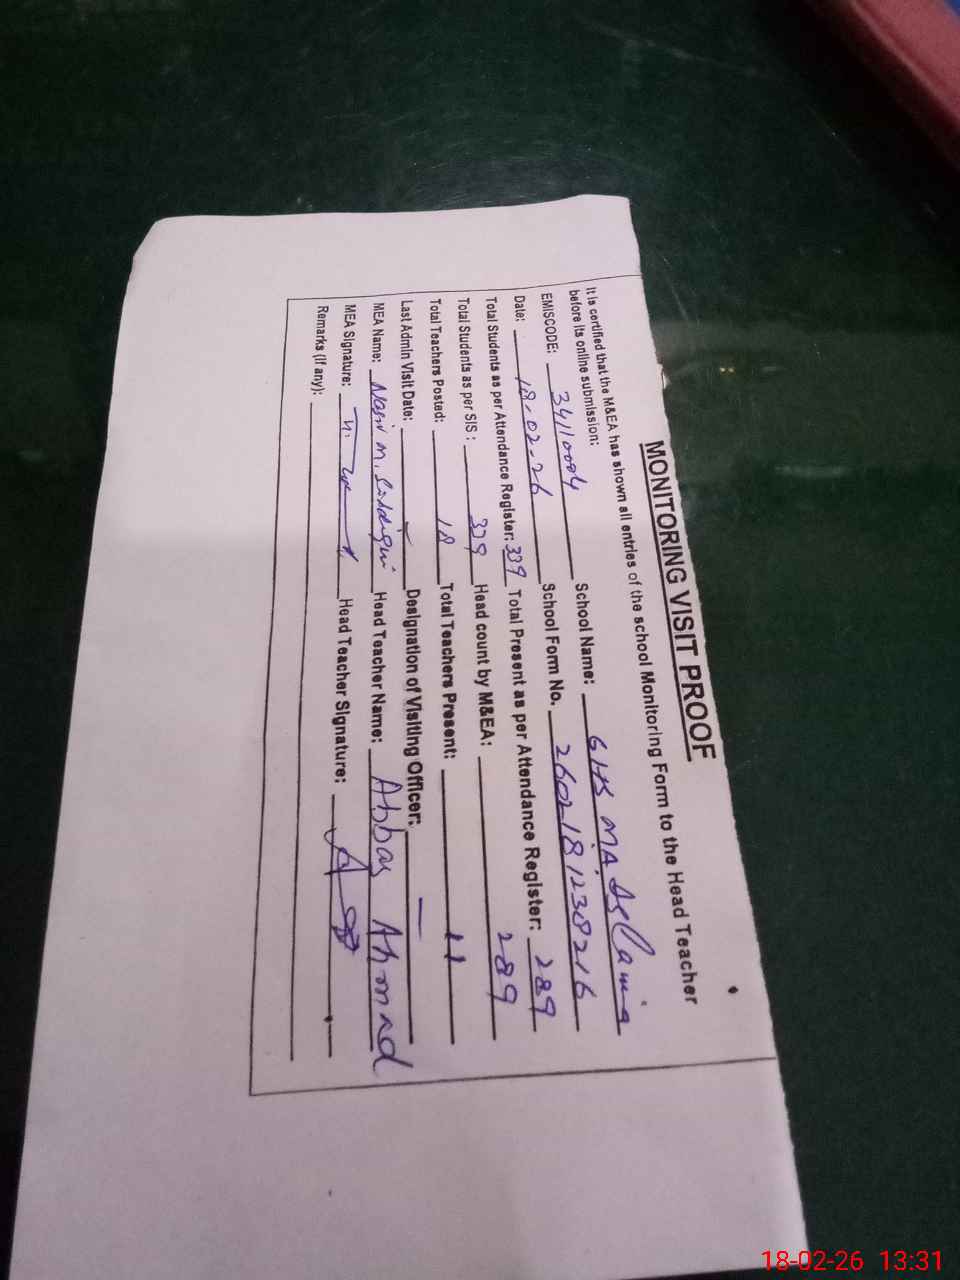 MONITORING VISIT PROOF
It is certified that the M&EA has shown all entries of the school Monitoring Form to the Head Teacher
before its online submission:
EMISCODE: 34110004 School Name: GHS MA Islamia
Date: 18-02-26 School Form No. 2602181238216
Total Students as per Attendance Register: 339 Total Present as per Attendance Register: 289
Total Students as per SIS: 339 Head count by M&EA: 289
Total Teachers Posted: 18 Total Teachers Present: 11
Last Admin Visit Date: Designation of Visiting Officer: —
MEA Name: Nasir M. Siddiqui Head Teacher Name: Abbas Ahmad
MEA Signature: Head Teacher Signature:
Remarks (if any):
18-02-26 13:31